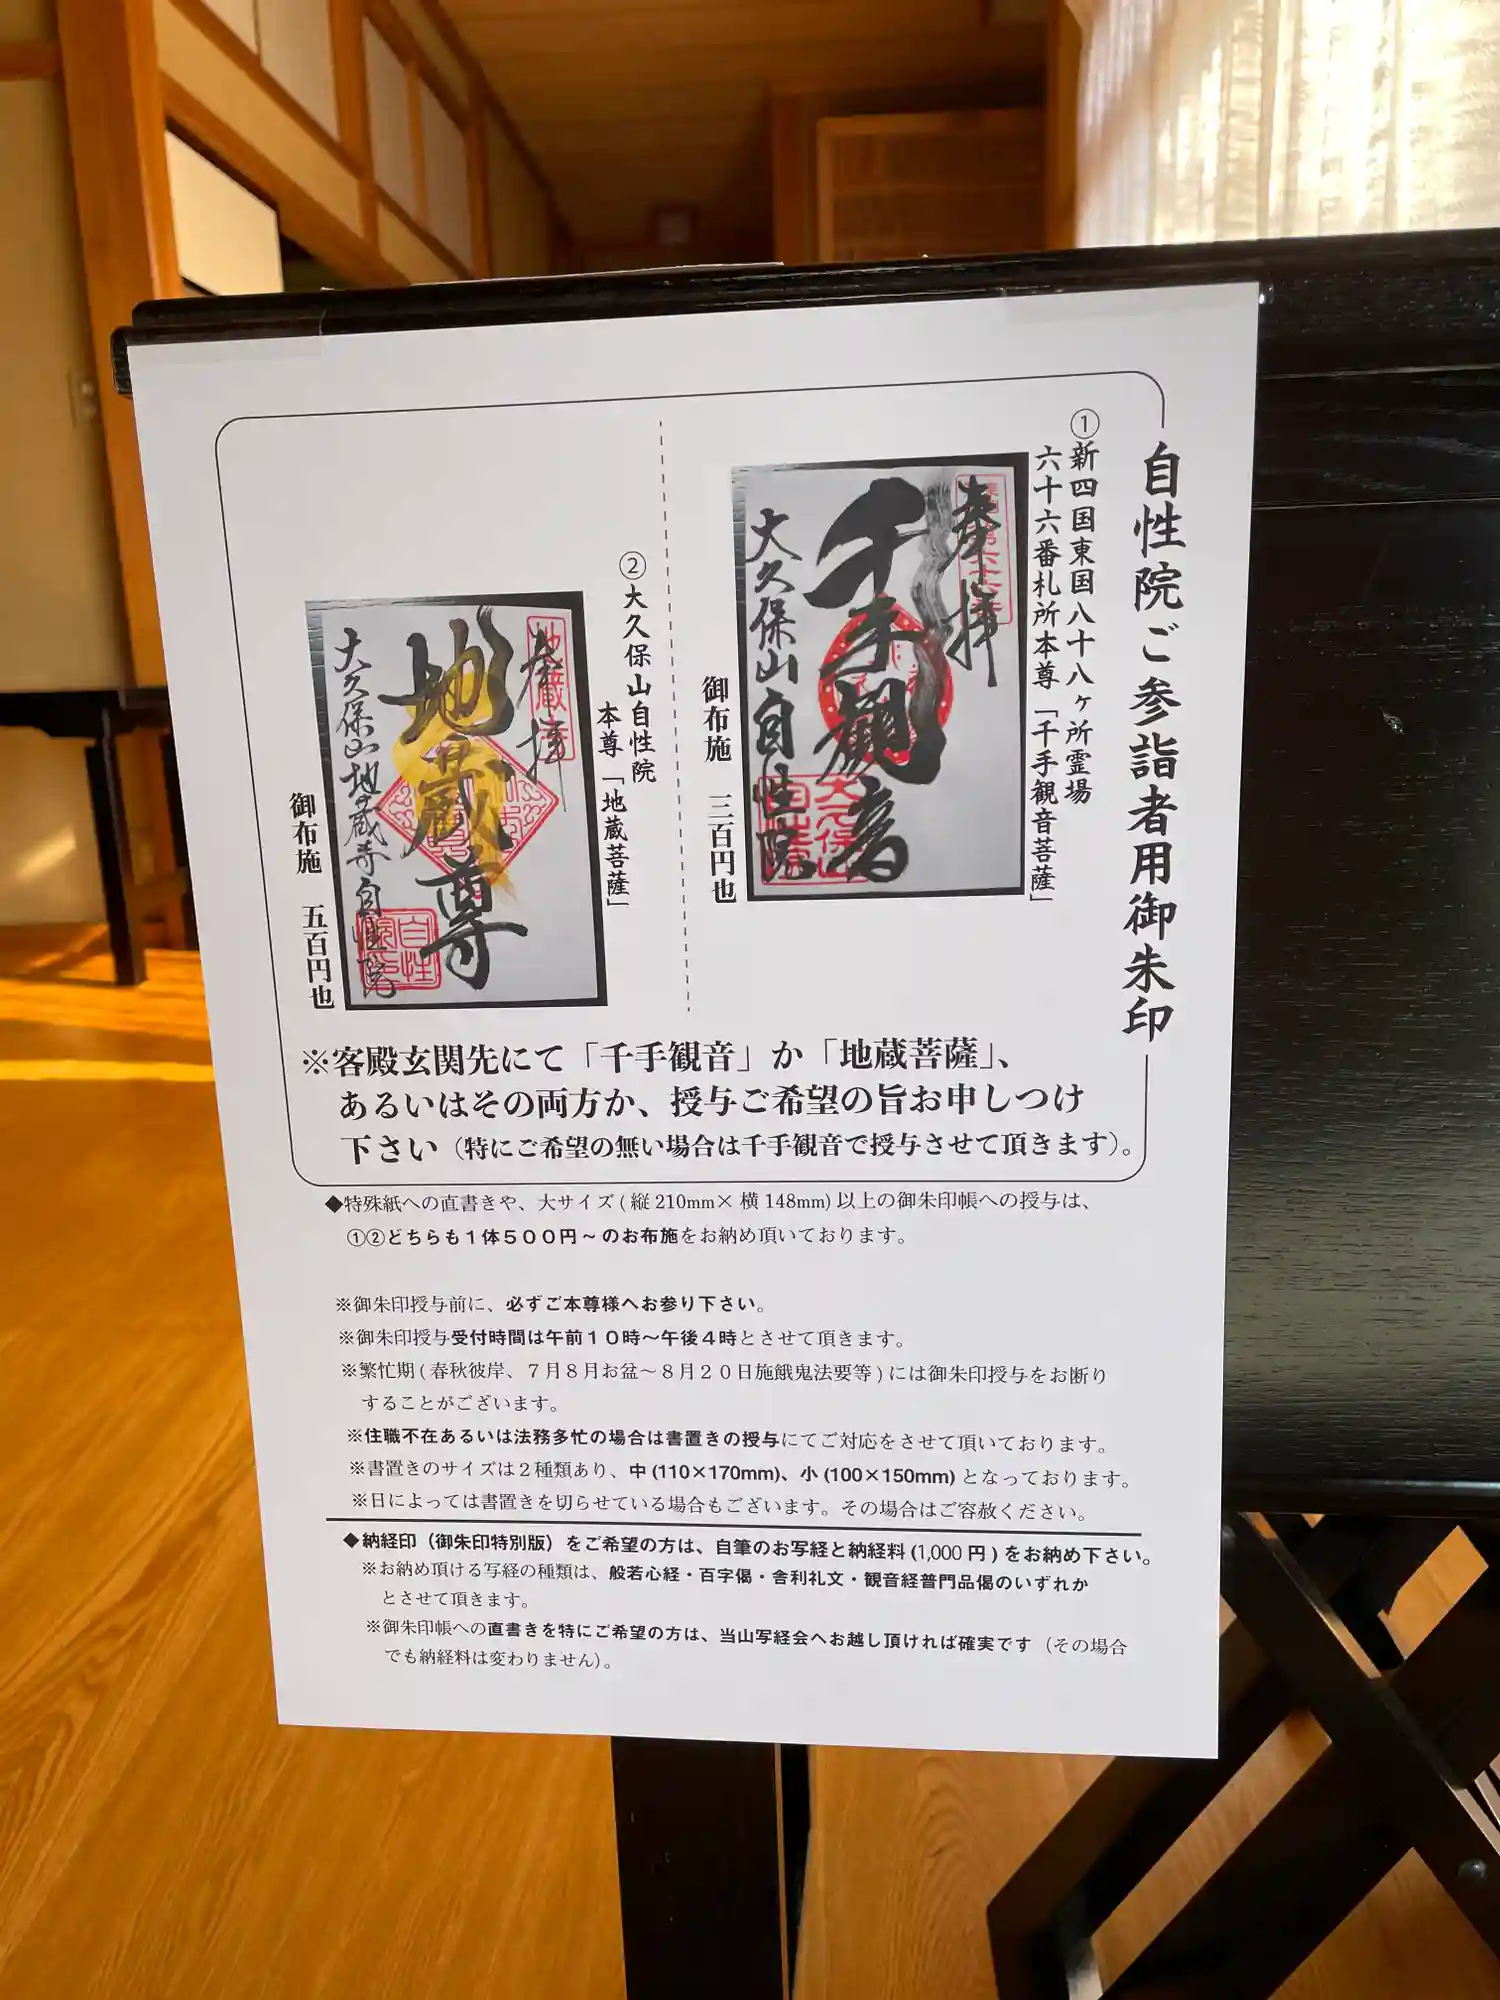 自性院ご参詣者用御朱印
①新四国東国八十八ヶ所霊場
六十六番札所本尊「千手観音菩薩」
奉拝
千手観音
大久保山自性院
御布施 三百円也
②大久保山自性院
本尊「地蔵菩薩」
奉拝
地蔵尊
大久保山地蔵寺自性院
御布施 五百円也
※客殿玄関先にて「千手観音」か「地蔵菩薩」、
あるいはその両方か、授与ご希望の旨お申しつけ
下さい（特にご希望の無い場合は千手観音で授与させて頂きます）。
◆特殊紙への直書きや、大サイズ(縦210mm×横148mm)以上の御朱印帳への授与は、
①②どちらも１体５００円～のお布施をお納め頂いております。
※御朱印授与前に、必ずご本尊様へお参り下さい。
※御朱印授与受付時間は午前１０時～午後４時とさせて頂きます。
※繁忙期(春秋彼岸、７月８月お盆～８月２０日施餓鬼法要等)には御朱印授与をお断り
することがございます。
※住職不在あるいは法務多忙の場合は書置きの授与にてご対応をさせて頂いております。
※書置きのサイズは２種類あり、中(110×170mm)、小(100×150mm)となっております。
※日によっては書置きを切らせている場合もございます。その場合はご容赦ください。
◆納経印（御朱印特別版）をご希望の方は、自筆のお写経と納経料(1,000円)をお納め下さい。
※お納め頂ける写経の種類は、般若心経・百字偈・舎利礼文・観音経普門品偈のいずれか
とさせて頂きます。
※御朱印帳への直書きを特にご希望の方は、当山写経会へお越し頂ければ確実です（その場合
でも納経料は変わりません）。